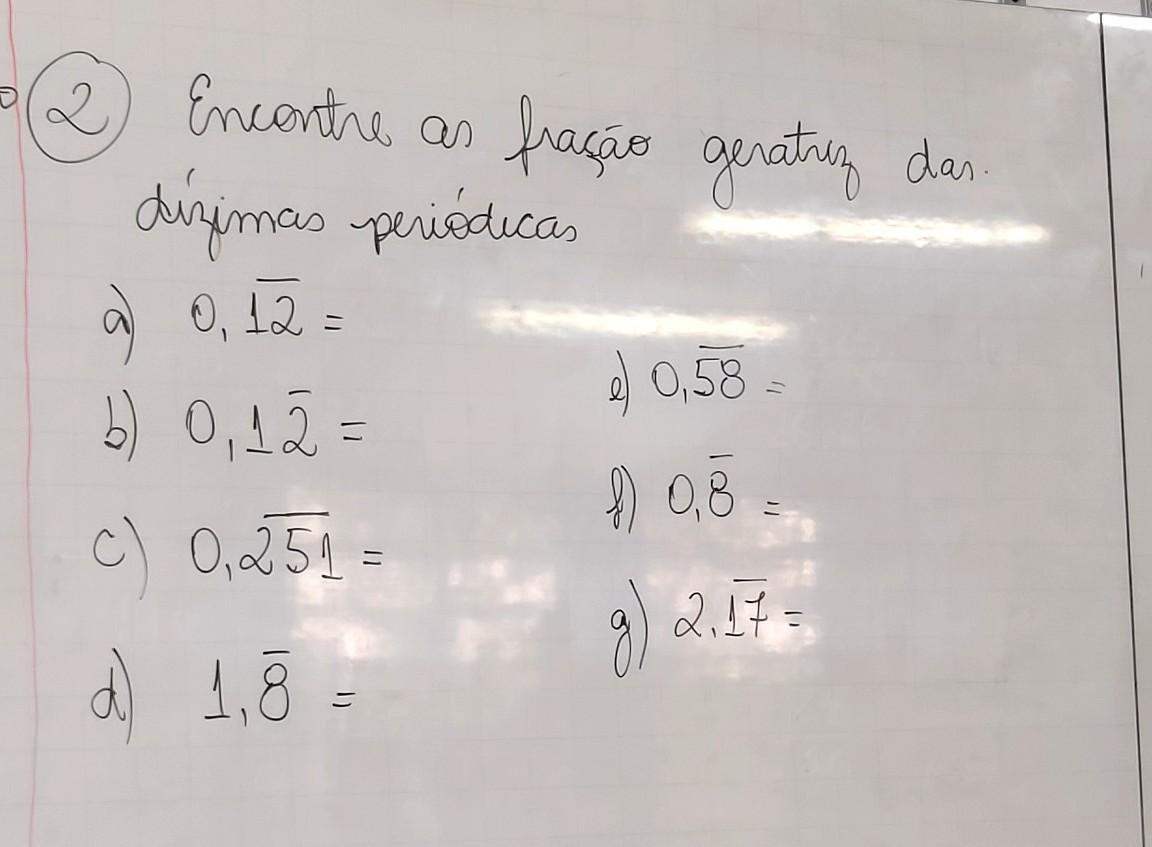 2 Encontre as fração geratriz das
dízimas periódicas
a) 0,1̅2̅ =
b) 0,12̅ =
c) 0,2̅5̅1̅ =
d) 1,8̅ =
e) 0,5̅8̅ =
f) 0,8̅ =
g) 2,1̅7̅ =